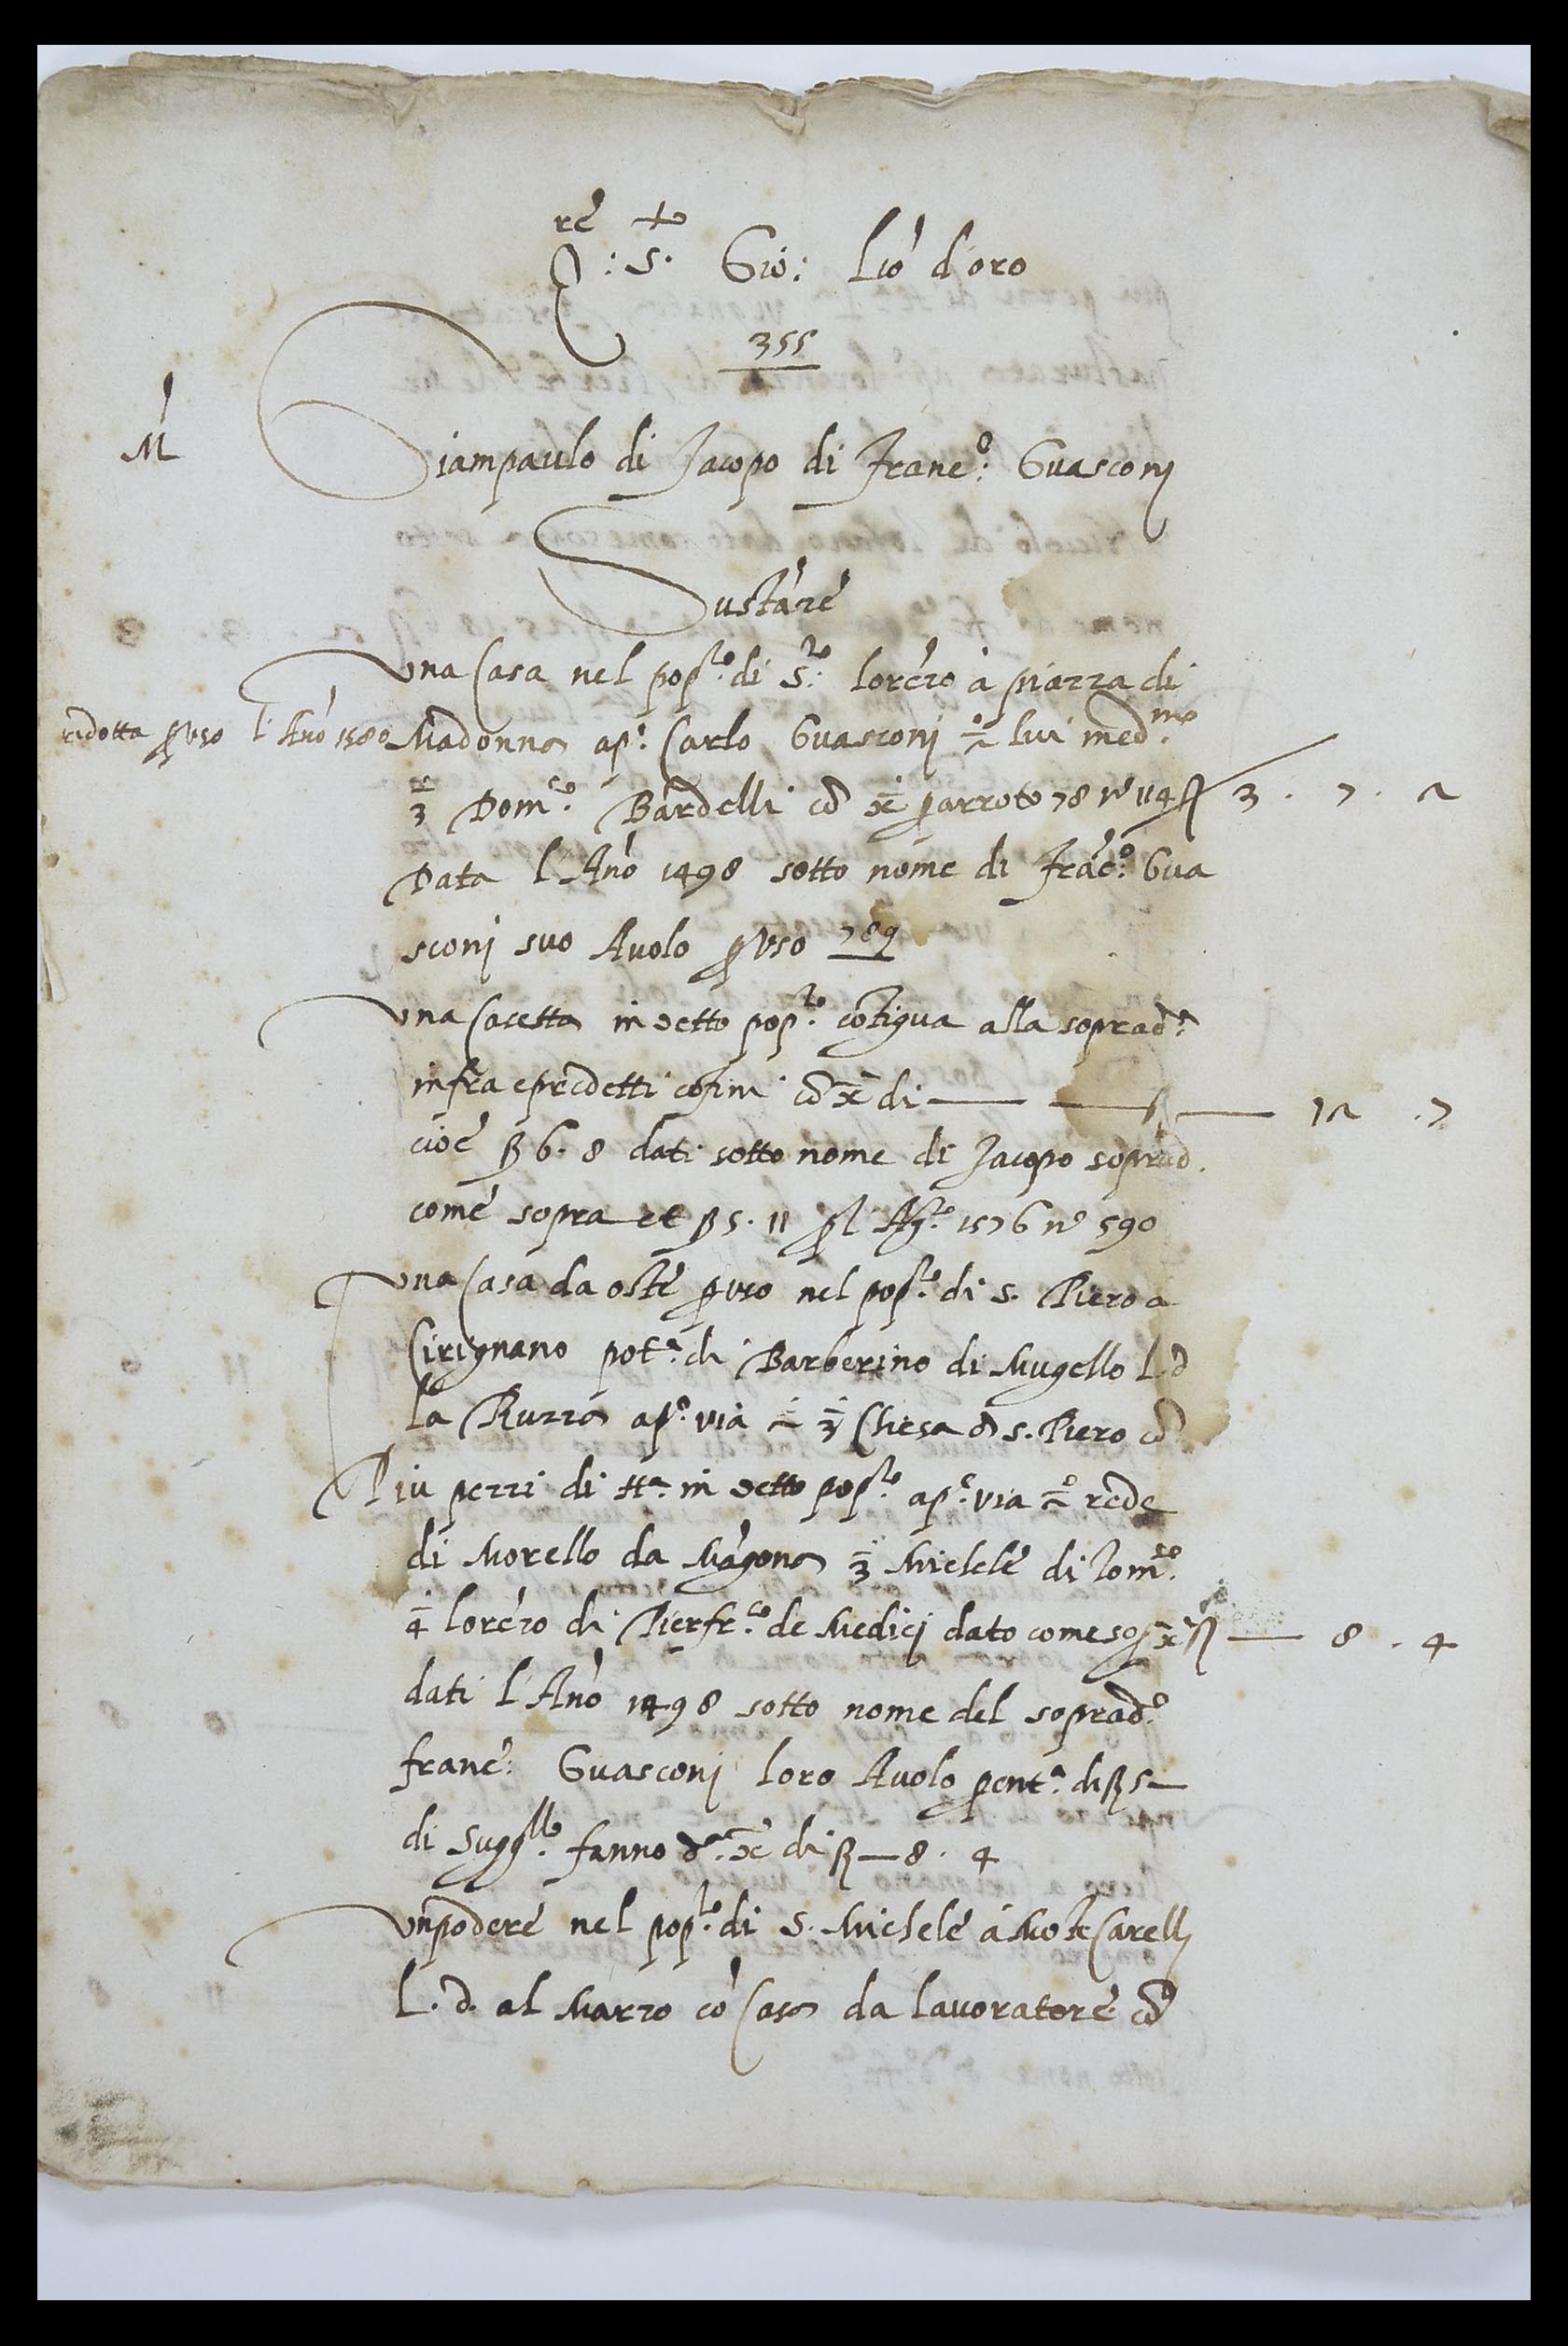 re +
Q: S. Gio: Lio d'oro
355
M
Giampaulo di Jacopo di Franc.º Guasconj
Sustāze
Una Casa nel pop.lo di S.to Lorēzo à piazza di
ridotta p uso l'Anō 1580
Madonna ap.º Carlo Guasconj 2º lui med.mo
3 Dom.co Bardelli cō xª p arroto 78 nº 114 ß 3 . 7 . 2
Data l'Anō 1498 sotto nome di Frāc.º Gua
sconj suo Avolo p uso 789
Una Casetta in detto pop.lo cōtigua alla soprad.ª
infra e predetti cōfini cō xª di — ß — 12 . 7
cioè ß 6. 8 dati sotto nome di Jacopo soprad.
come sopra et ß 5. 11 pl Ag.to 1576 nº 590
Una Casa da oste p uso nel pop.lo di S. Piero a
Cirignano pot.ª di Barberino di Mugello L. d
la Ruzza ap.º via 2 3 Chiesa d S. Piero cō
Più pezzi di tt.ª in detto pop.lo ap.º via 2º rede
di Morello da Māgona 3 Michele di Tom.so
4 Lorēzo di Pierfr.co de Medicj dato come sop xª ß — 8 . 4
dati l'Anō 1498 sotto nome del soprad.º
franc.º Guasconj loro Avolo p ent.ª di ß 5 —
di Sugg.llo fanno d.ª xª di ß — 8 . 4
Un podere nel pop.lo di S. Michele à Mōte Carellj
L. d. al Marzo cō Casa da lavoratore cō